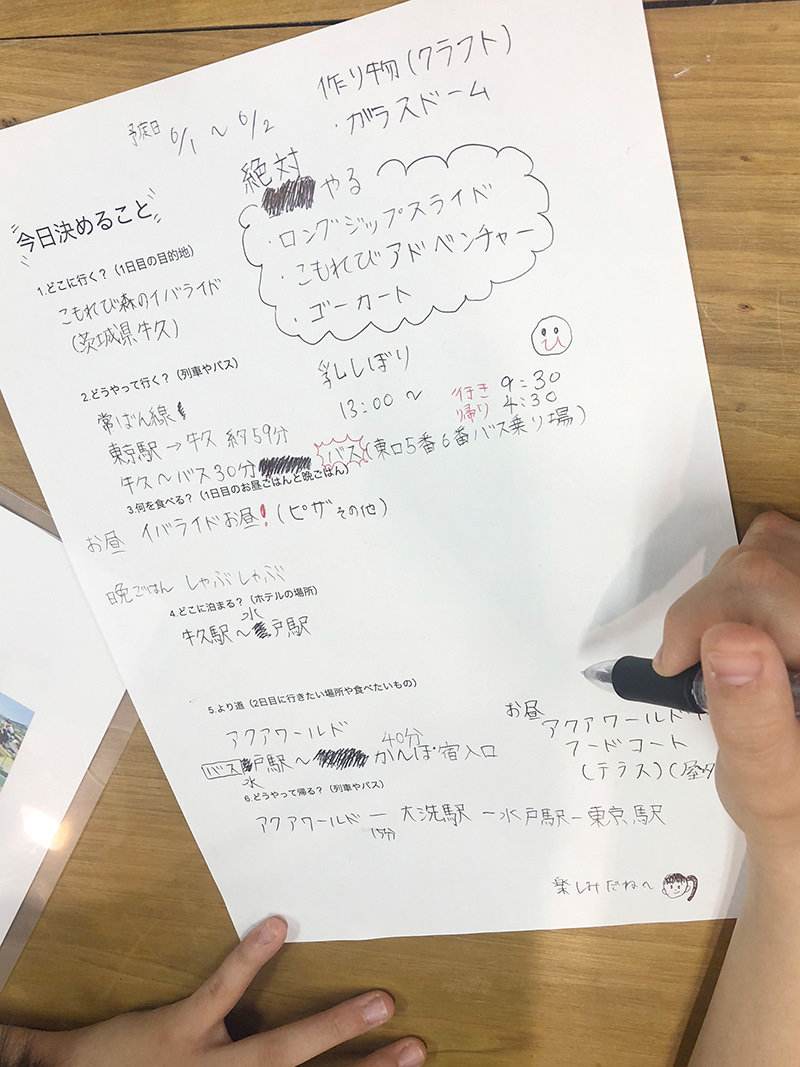 作り物(クラフト)
・ガラスドーム
予定日 6/1 ~ 6/2
絶対
やる
・ロングジップスライド
・こもれびアドベンチャー
・ゴーカート
今日決めること
1.どこに行く?(1日目の目的地)
こもれび森のイバライド
(茨城県牛久)
乳しぼり
13:00~
2.どうやって行く?(列車やバス)
常ばん線
行き 9:30
帰り 4:30
東京駅→牛久 約59分
牛久~バス30分 バス(東口5番6番バス乗り場)
3.何を食べる?(1日目のお昼ごはんと晩ごはん)
お昼 イバライドお昼!(ピザその他)
晩ごはん しゃぶしゃぶ
4.どこに泊まる?(ホテルの場所)
牛久駅~水戸駅
5.より道(2日目に行きたい場所や食べたいもの)
アクアワールド
バス 水戸駅~ 40分 かんぽ宿入口
お昼
アクアワールド
フードコート
(テラス)(屋
6.どうやって帰る?(列車やバス)
アクアワールド ー 大洗駅 ー水戸駅ー東京駅
15分
楽しみだね~